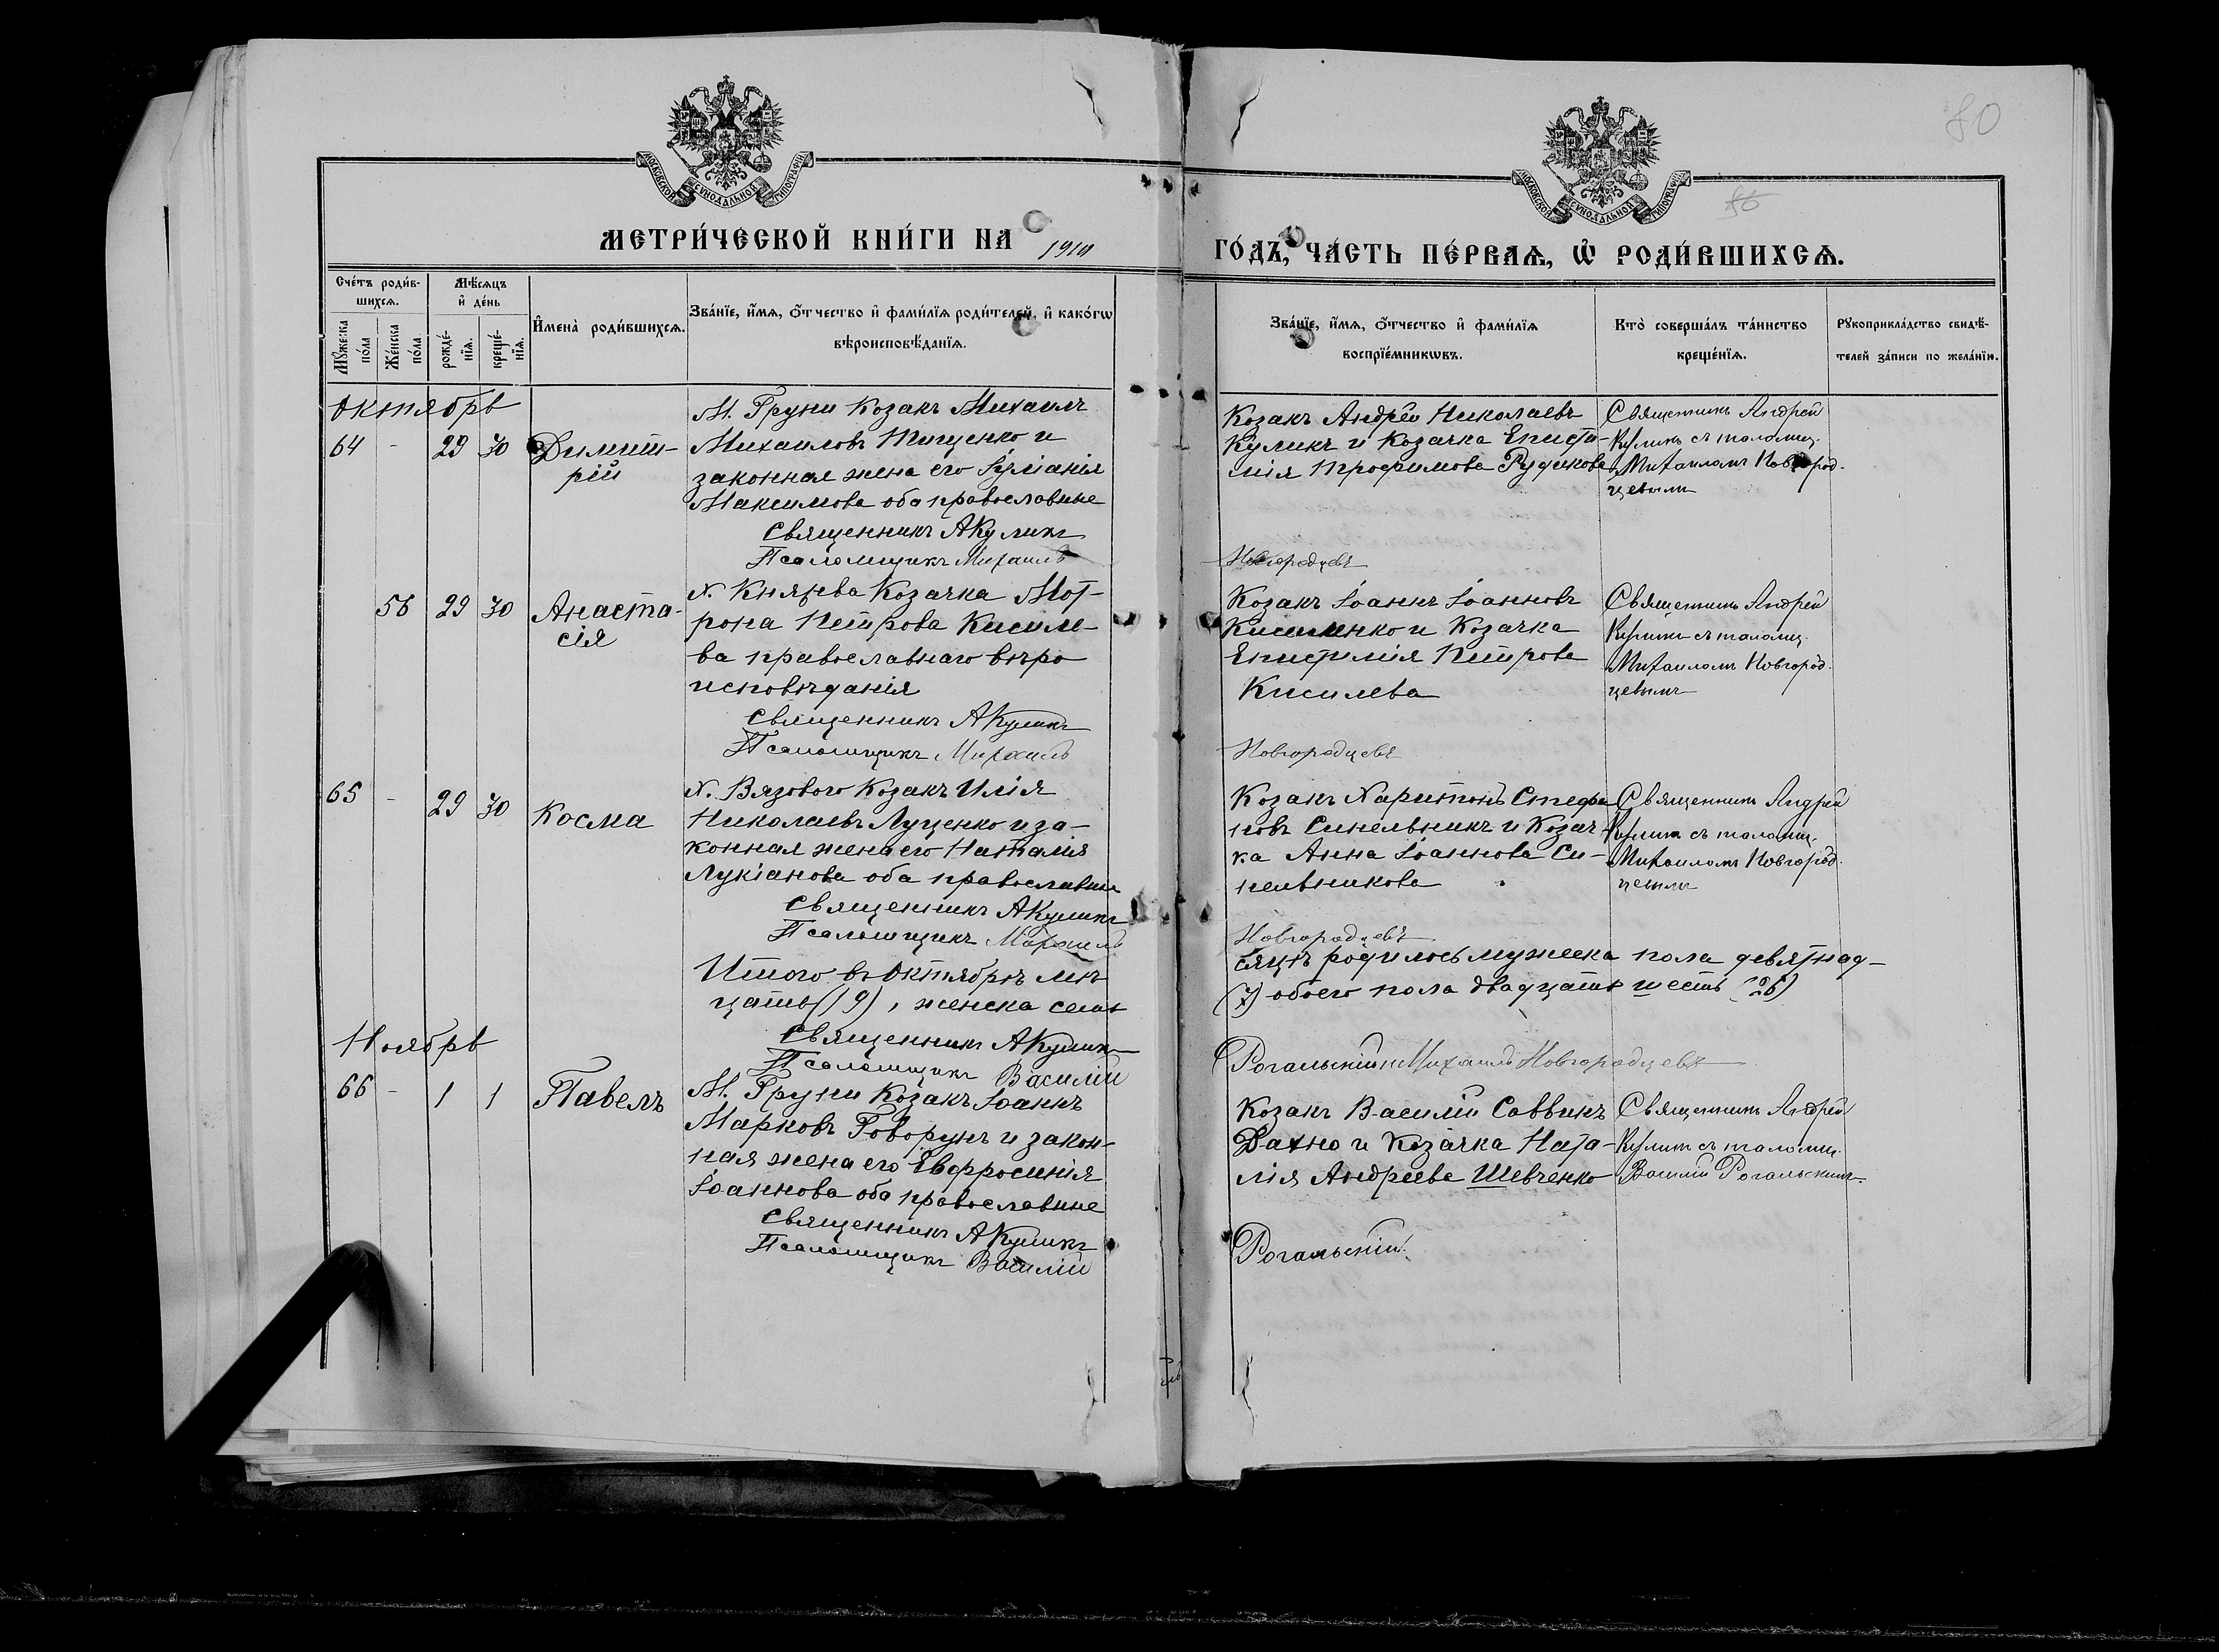 80
МОСКОВСКОЙ СѴНОДАЛЬНОЙ ТИПОГРАФІИ
МОСКОВСКОЙ СѴНОДАЛЬНОЙ ТИПОГРАФІИ
МЕТРИ́ЧЕСКОЙ КНИ́ГИ НА
ГО́ДЪ, ЧА́СТЬ ПЕ́РВАѦ, Ѽ РОДИ́ВШИХСѦ.
Сче́тъ роди́в-
шихсѧ.
Мꙋ́жеска
по́ла
Же́нска
по́ла
Мѣ́сѧцъ
и҆ де́нь
рожде́-
нїѧ.
креще́-
нїѧ.
И҆мена̀ роди́вшихсѧ.
Зва́нїе, и҆́мѧ, ѻ҆́тчество и҆ фами́лїѧ роди́телей, и҆ како́гѡ
вѣроисповѣ́данїѧ.
Зва́нїе, и҆́мѧ, ѻ҆́тчество и҆ фами́лїѧ
воспрїе́мникѡвъ.
Кто̀ соверша́лъ та́инство
креще́нїѧ.
Рꙋкоприкла́дство свидѣ́-
телей за́писи по жела́нїю.
Октябрь
64 - 29 30
Димит-
рій
М. Груни Козакъ Михаилъ
Михаиловъ Тищенко и
законная жена его Іуліанія
Максимова оба православные
Священникъ А Куликъ
Псаломщикъ Михаилъ
Козакъ Андрей Николаевъ
Куликъ и Козачка Еписти-
мія Трофимова Рудикова
Новгородцевъ
Священникъ Андрей
Куликъ съ псаломщ.
Михаиломъ Новгород-
цевымъ
56 29 30
Анаста-
сія
Х. Князева Козачка Мот-
рона Петрова Кисиле-
ва православнаго вѣро
исповѣданія
Священникъ А Куликъ
Псаломщикъ Михаилъ
Козакъ Іоаннъ Іоанновъ
Кисиленко и Козачка
Епистимія Петрова
Кисилева
Новгородцевъ
Священникъ Андрей
Куликъ съ псаломщ.
Михаиломъ Новгород-
цевымъ
65 - 29 30
Косма
Х. Вязового Козакъ Илія
Николаевъ Луценко и за-
конная жена его Наталія
Лукіанова оба православные
Священникъ А Куликъ
Псаломщикъ Михаилъ
Козакъ Харитонъ Стефа
новъ Синельникъ и Козач-
ка Анна Іоаннова Си-
нельникова
Новгородцевъ
Священникъ Андрей
Куликъ съ псаломщ.
Михаиломъ Новгород-
цевымъ
Итого въ Октябрѣ мѣ-
сяцѣ родилось мужеска пола девятнад-
цать (19), женска семь
(7) обоего пола двадцать шесть (26)
Священникъ А Куликъ
Псаломщики Василій
Рогальскій и Михаилъ Новгородцевъ
Ноябрь
66 - 1 1
Павелъ
М. Груни Козакъ Іоаннъ
Марковъ Говорунъ и закон-
ная жена его Евфросинія
Іоаннова оба православные
Священникъ А Куликъ
Псаломщикъ Василій
Козакъ Василій Саввинъ
Дахно и Козачка Ната-
лія Андреева Шевченко
Рогальскій
Священникъ Андрей
Куликъ съ псаломщ.
Василій Рогальскимъ